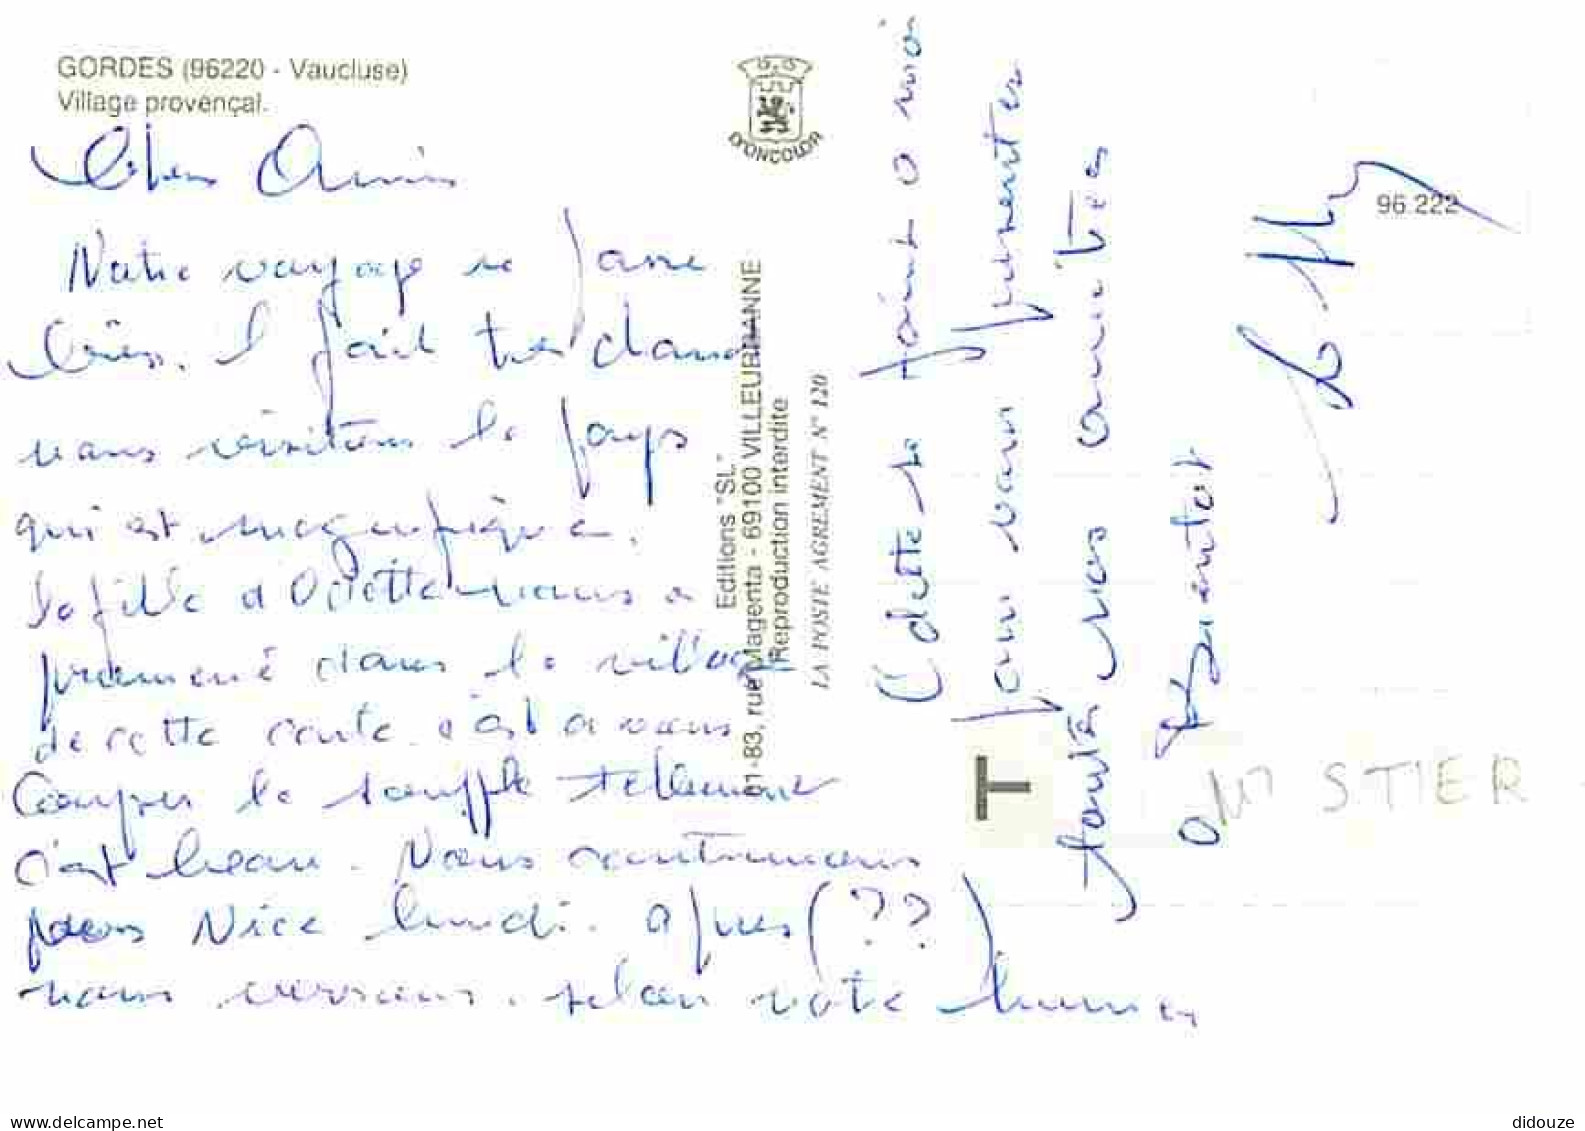 GORDES (96220 - Vaucluse)
Village provençal.
Chers Amis
Notre voyage se passe
bien. Il fait très chaud
nous visitons le pays
qui est magnifique.
la fille d'Odette nous a
promené dans le village
de cette carte. c'est a vous
Couper le souffle tellement
c'est beau. Nous continuons
pour Nice lundi. après (??)
nous verrons. selon notre humeur
D'ONCOLOR
Editions "SL"
81-83, rue Magenta - 69100 VILLEURBANNE
Reproduction interdite
LA POSTE AGREMENT N° 120
Odette se joint a moi
pour vous présenter
toutes nos amitiés
a Bientot
96.222
T
MSTIER
www.delcampe.net
didouze